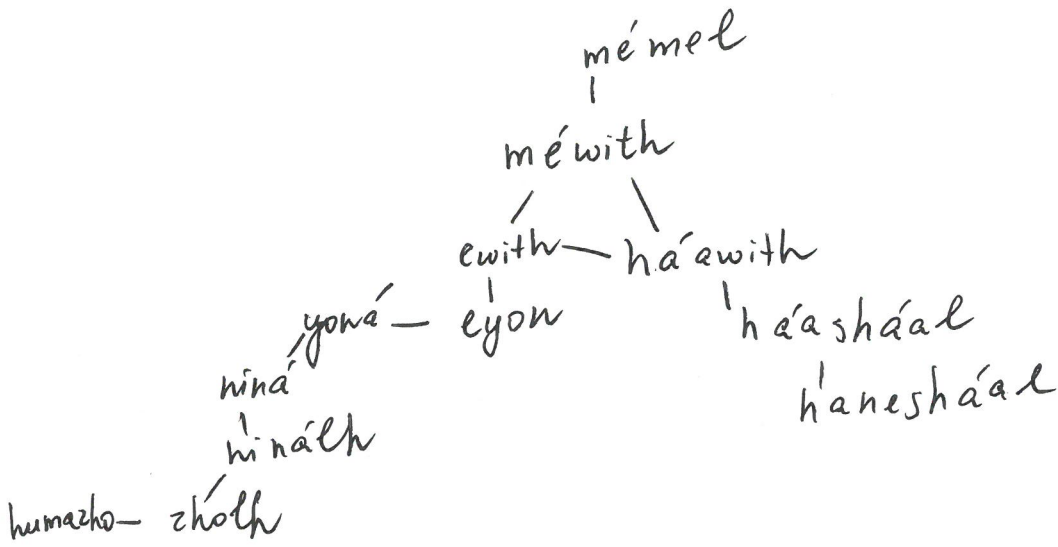 mémel
méwith
ewith — háawith
yoná — eyon
háasháal
niná
hanesháal
ninálh
humazho — zholh